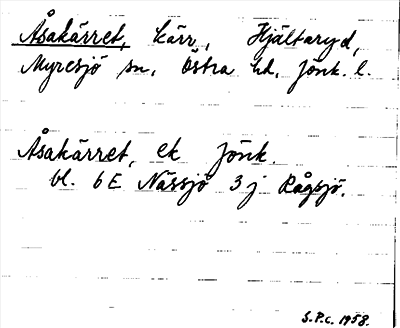 Åsakärret, kärr, Hjältaryd,
Myresjö sn, Östra hd, Jönk. l.
Åsakärret, ek Jönk.
bl. 6E Nässjö 3j Rågsjö.
S.P.c. 1958.